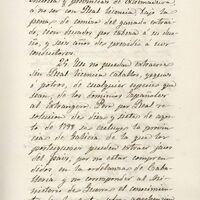 Andalucia y provincias de Extremadura
á no ser con Real licencia bajo la
pena de comiso del ganado extrai-
do, cien ducados por cabeza á su due-
ño, y seis años de presidio á sus
conductores.
26. No se pueden extraer
sin Real licencia caballos, yeguas
ni potros, de cualquier especie que
sean, de los dominios Españoles
al Extrangero. Pero por Real re-
solucion de diez y siete de agos-
to de 1799 se excluye la provin-
cia de Galicia de la que los
portugueses pueden extraer jacos
del pais, por no estar compren-
didos en la ordenanza de Caba-
lleria y corresponder al Mi-
nisterio de Guerra el conocimien-